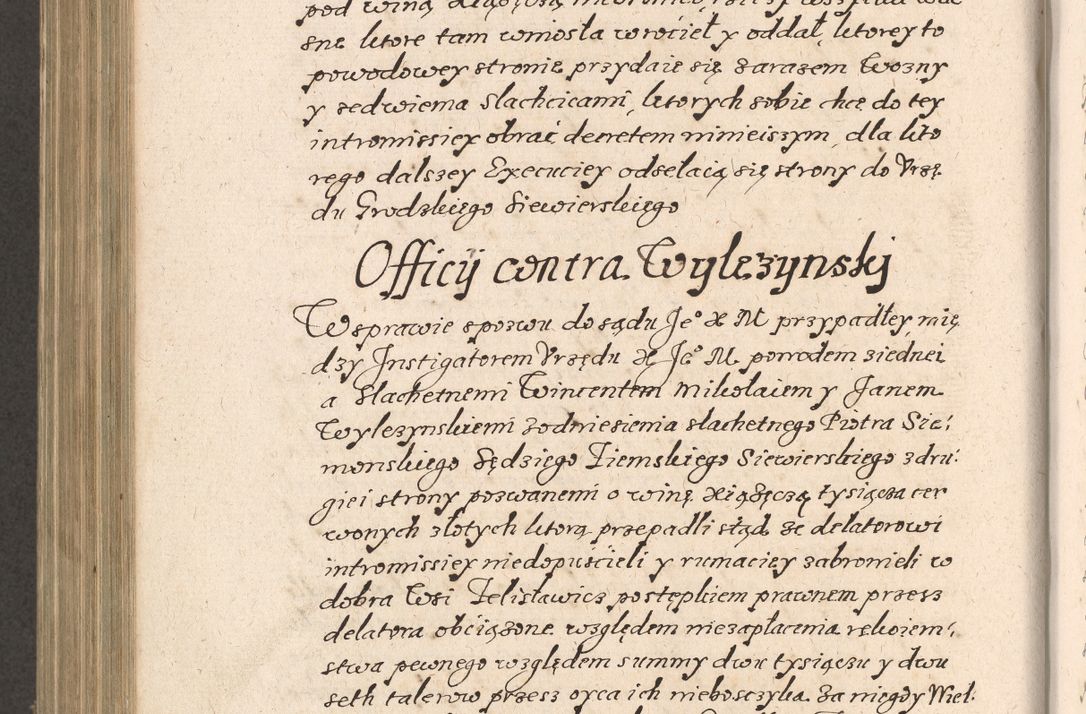 sne ktore tam wniosła wrocieł y oddał, ktorey to
powodowey stronie przydaie się zarazem Wozny
y zedwiema Slachcicami, ktorych sobie chce do tey
intromissiey obrać decretem ninieiszym, dla kto
rego dalszey Execuciey odsełaią się strony do Vrzę
du Grodzkiego Siewierskiego
Officij contra Wylezynskj
W sprawie s pozwu do sądu Jeº X M przypadłey mię
dzy Instigatorem Vrzędu X Jeº M. powodem ziednei
a Slachetnemi Wincentem Mikołaiem y Janem
Wylezynskiemi zodniesienia slachetnego Piotra Sie:
monskiego Sędziego Ziemskiego Siewierskiego z dru:
giei strony pozwanemi o winę Xiążęczą tysiącza cer
wonych złotych ktorą przepadli stąd że delatorowi
intromissiey niedopuścieli y rumaciey zabronieli w
dobra Wsi Zelisławicz postępkiem prawnem przesz
delatora obciążone względem niezapłacenia rękoiem:
stwa pewnego względem summy dwu tysiączu y dwu
seth talerow przesz oyca ich nieboszczyka za niegdy Wiel: